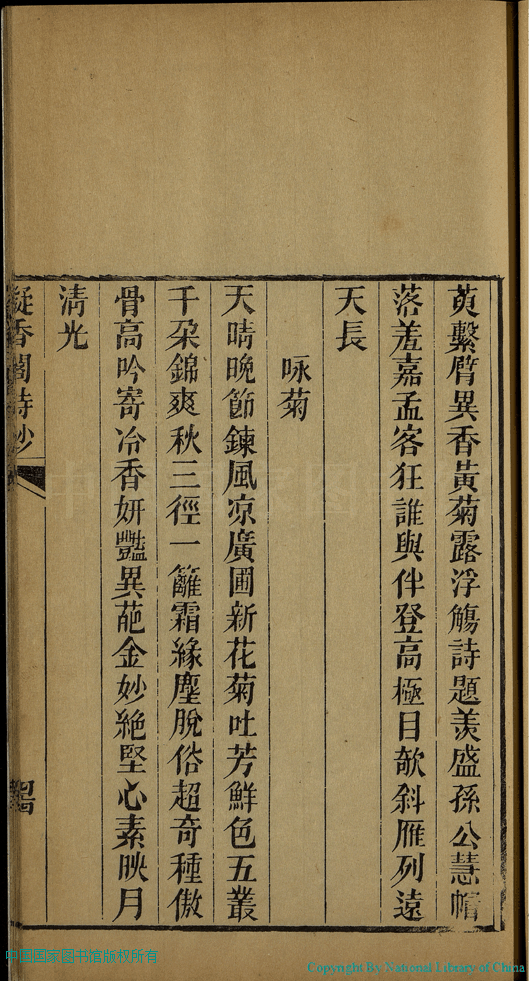 萸繫臂異香黃菊露浮觴詩題羨盛孫公慧帽
落羞嘉孟客狂誰與伴登高極目欹斜雁列遠
天長
咏菊
天晴晚節鍊風凉廣圃新花菊吐芳鮮色五叢
千朶錦爽秋三徑一籬霜緣塵脫俗超奇種傲
骨高吟寄冷香妍豔異葩金妙絶堅心素映月
淸光
凝香閣詩鈔
中国国家图书馆版权所有
Copyright By National Library of China